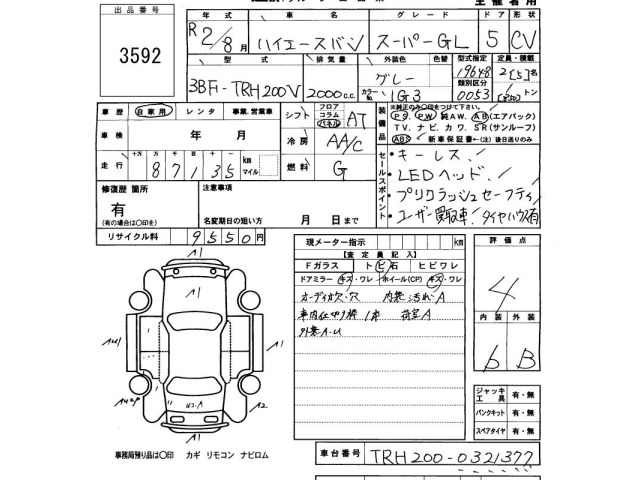 出品番号
3592
年式 車名 グレード ドア 形状
R2/8月 ハイエースバン スーパーGL 5 CV
型式 排気量 外装色 色替 型式指定 定員・積載
3BF-TRH200V 2000c.c. グレー 19648 2[5]名
カラーNo. 1G3 類別区分 0053 トン
車歴 自家用 レンタ 事業、営業車
車検 年 月
走行 十万 万 千 百 十 km マイル
87135
シフト フロア コラム パネル AT
冷房 AA/C
燃料 G
装備品 ※純正のみ○印をつけて下さい。
PS、PW、純AW、AB(エアバック)
TV、ナビ、カワ、SR(サンルーフ)
ABS 新車保証書(←注)後日送りのみ
セールスポイント
・キーレス
・LEDヘッド
・プリクラッシュセーフティ
・ユーザー買取車! タイヤハウス有
修復歴 箇所
有
(有の場合は○印を)
注意事項
名変期日の短い方 月 日まで
リサイクル料 9550円
現メーター指示 km
【査定員記入】
Fガラス トビ石 ヒビワレ
ドアミラー キズ・ワレ ホイール(CP) キズ・ワレ
オーディオ欠・穴 内装汚れA
車内仕切り枠 1本 荷室A
外装A-U
評価点
4
内装 外装
b B
ジャッキ 工具 有・無
パンクキット 有・無
スペアタイヤ 有・無
A1
A1
A1
A2
A1
事務局預り品は○印 カギ リモコン ナビロム
車台番号 TRH200-0321377